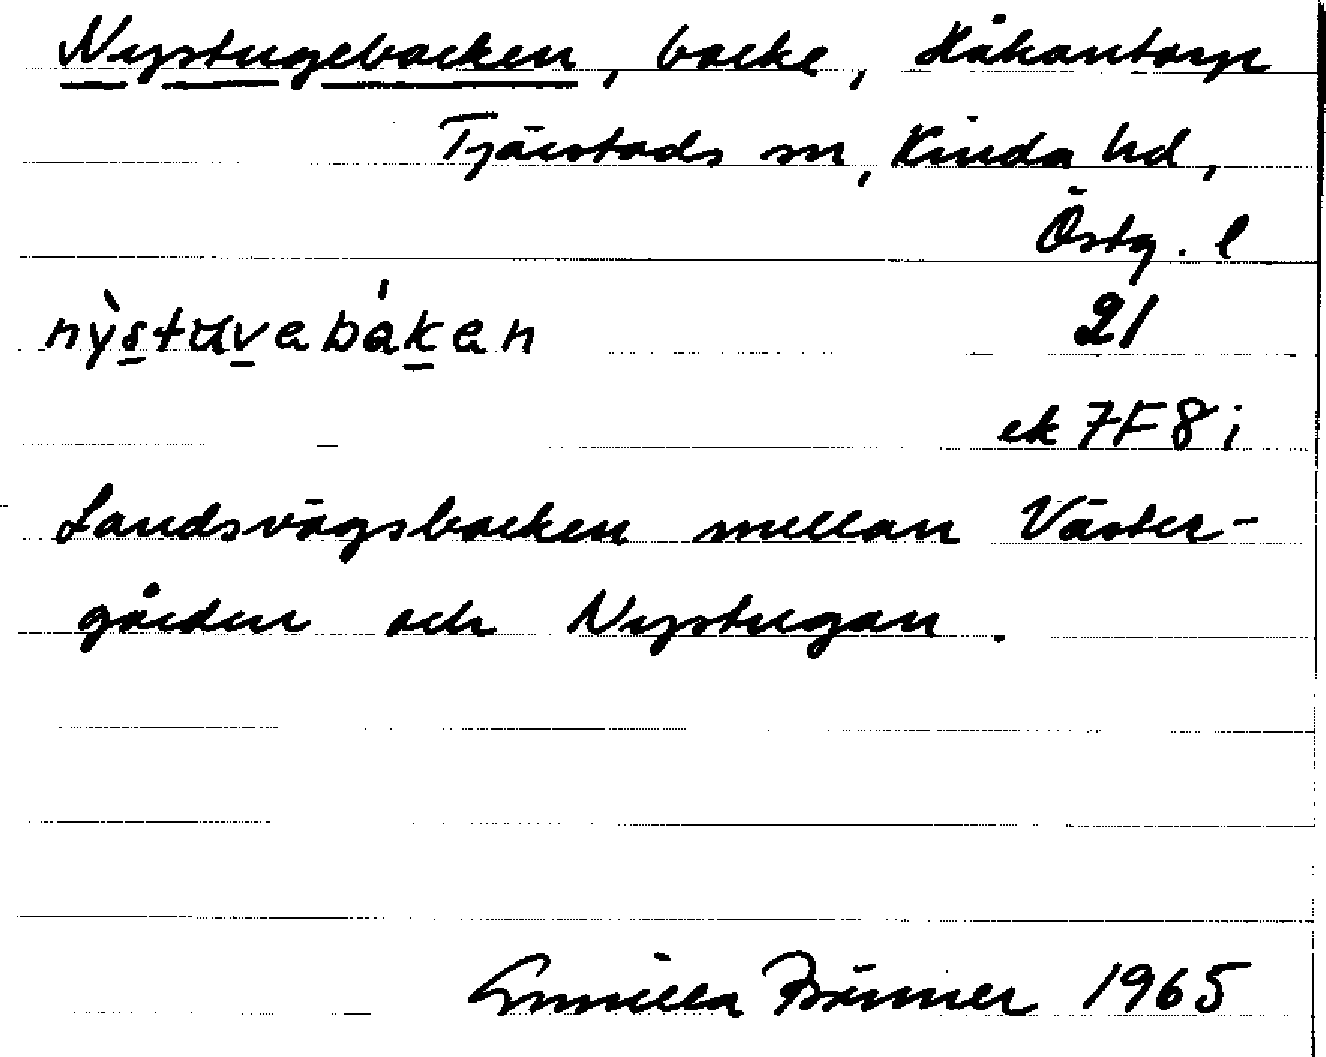 Nystugebacken, backe, Håkantorp
Tjärstads sn, Kinda hd,
Östg. l
nỳstuvebákan 21
ek 7F8i
Landsvägsbacken mellan Väster-
gården och Nystugan.
Gunilla 1965